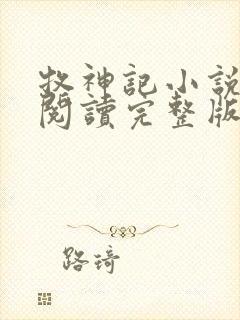 牧神記小說
閱讀完整版
路琦